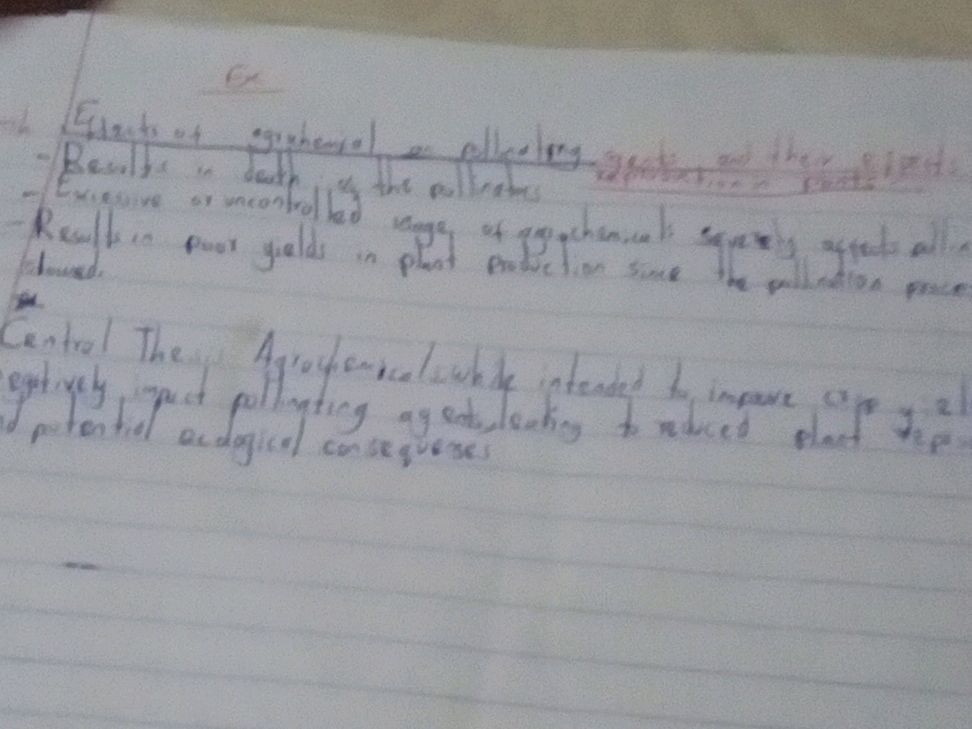 Ex
Effects of agrochemical on pollinating agents and their effects
reproduction in plants
- Results in death of the pollinators
- Excessive or uncontrolled usage of agrochemicals affects
- Results in poor yields in plant production since the pollination proce
slowed.
Central The Agrochemicals while intended to improve crop
egatively impact pollinating agents, leading to reduced plant
nd potential ecological consequenses